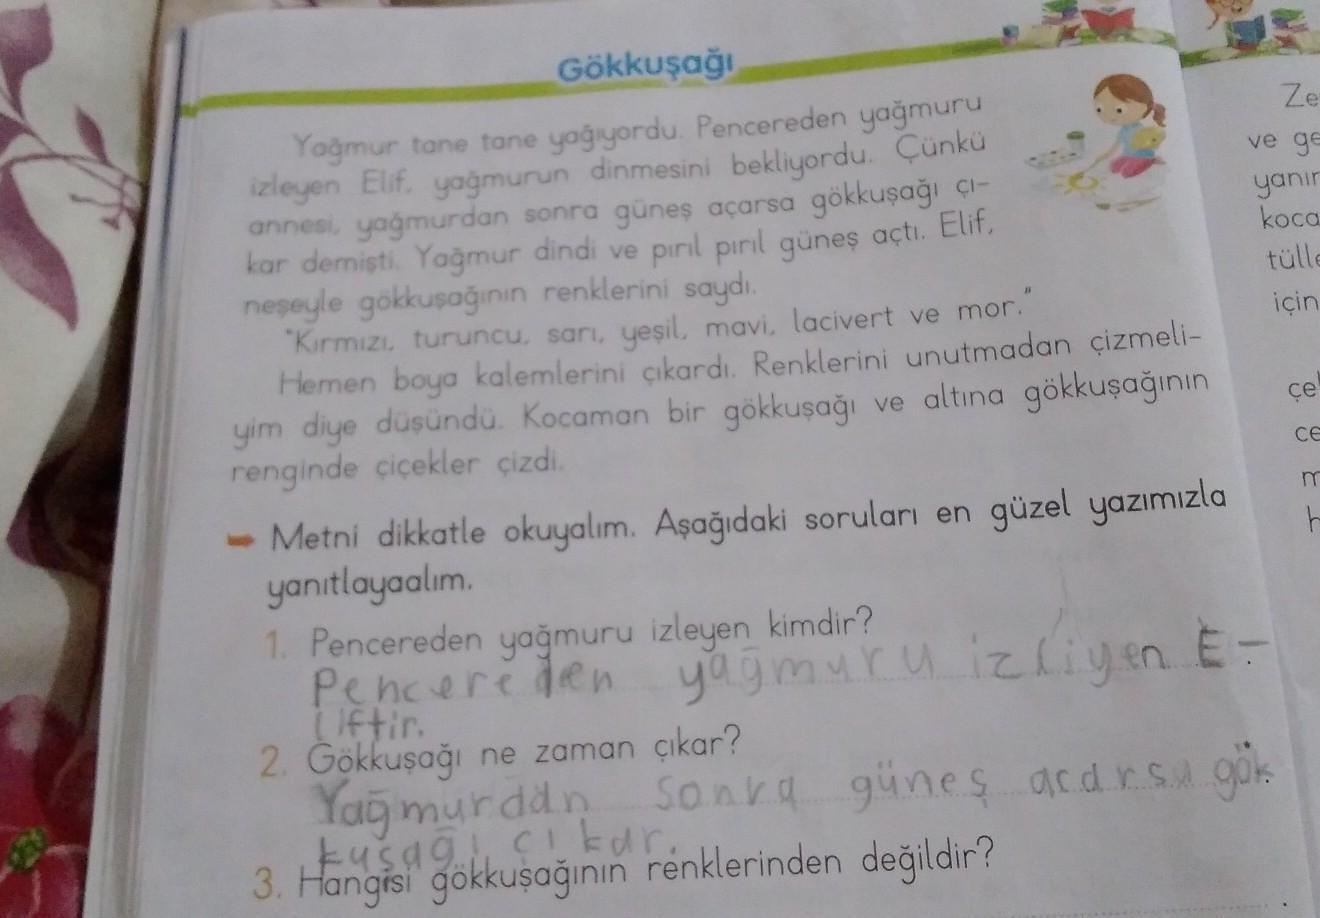 Gökkuşağı
Yağmur tane tane yağıyordu. Pencereden yağmuru
izleyen Elif, yağmurun dinmesini bekliyordu. Çünkü
annesi, yağmurdan sonra güneş açarsa gökkuşağı çı-
kar demişti. Yağmur dindi ve pırıl pırıl güneş açtı. Elif,
neşeyle gökkuşağının renklerini saydı.
"Kırmızı, turuncu, sarı, yeşil, mavi, lacivert ve mor."
Hemen boya kalemlerini çıkardı. Renklerini unutmadan çizmeli-
yim diye düşündü. Kocaman bir gökkuşağı ve altına gökkuşağının
renginde çiçekler çizdi.
Metni dikkatle okuyalım. Aşağıdaki soruları en güzel yazımızla
yanıtlayaalım.
1. Pencereden yağmuru izleyen kimdir?
Pencereden yağmuru izliyen E-
liftir.
2. Gökkuşağı ne zaman çıkar?
Yağmurdan sonra güneş acarsa gök
kuşağı çıkar.
3. Hangisi gökkuşağının renklerinden değildir?
Ze
ve ge
yanır
koca
tülle
için
çe
ce